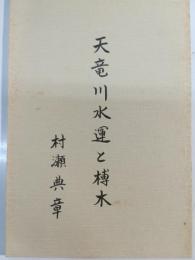 天竜川水運と榑木
村瀬典章